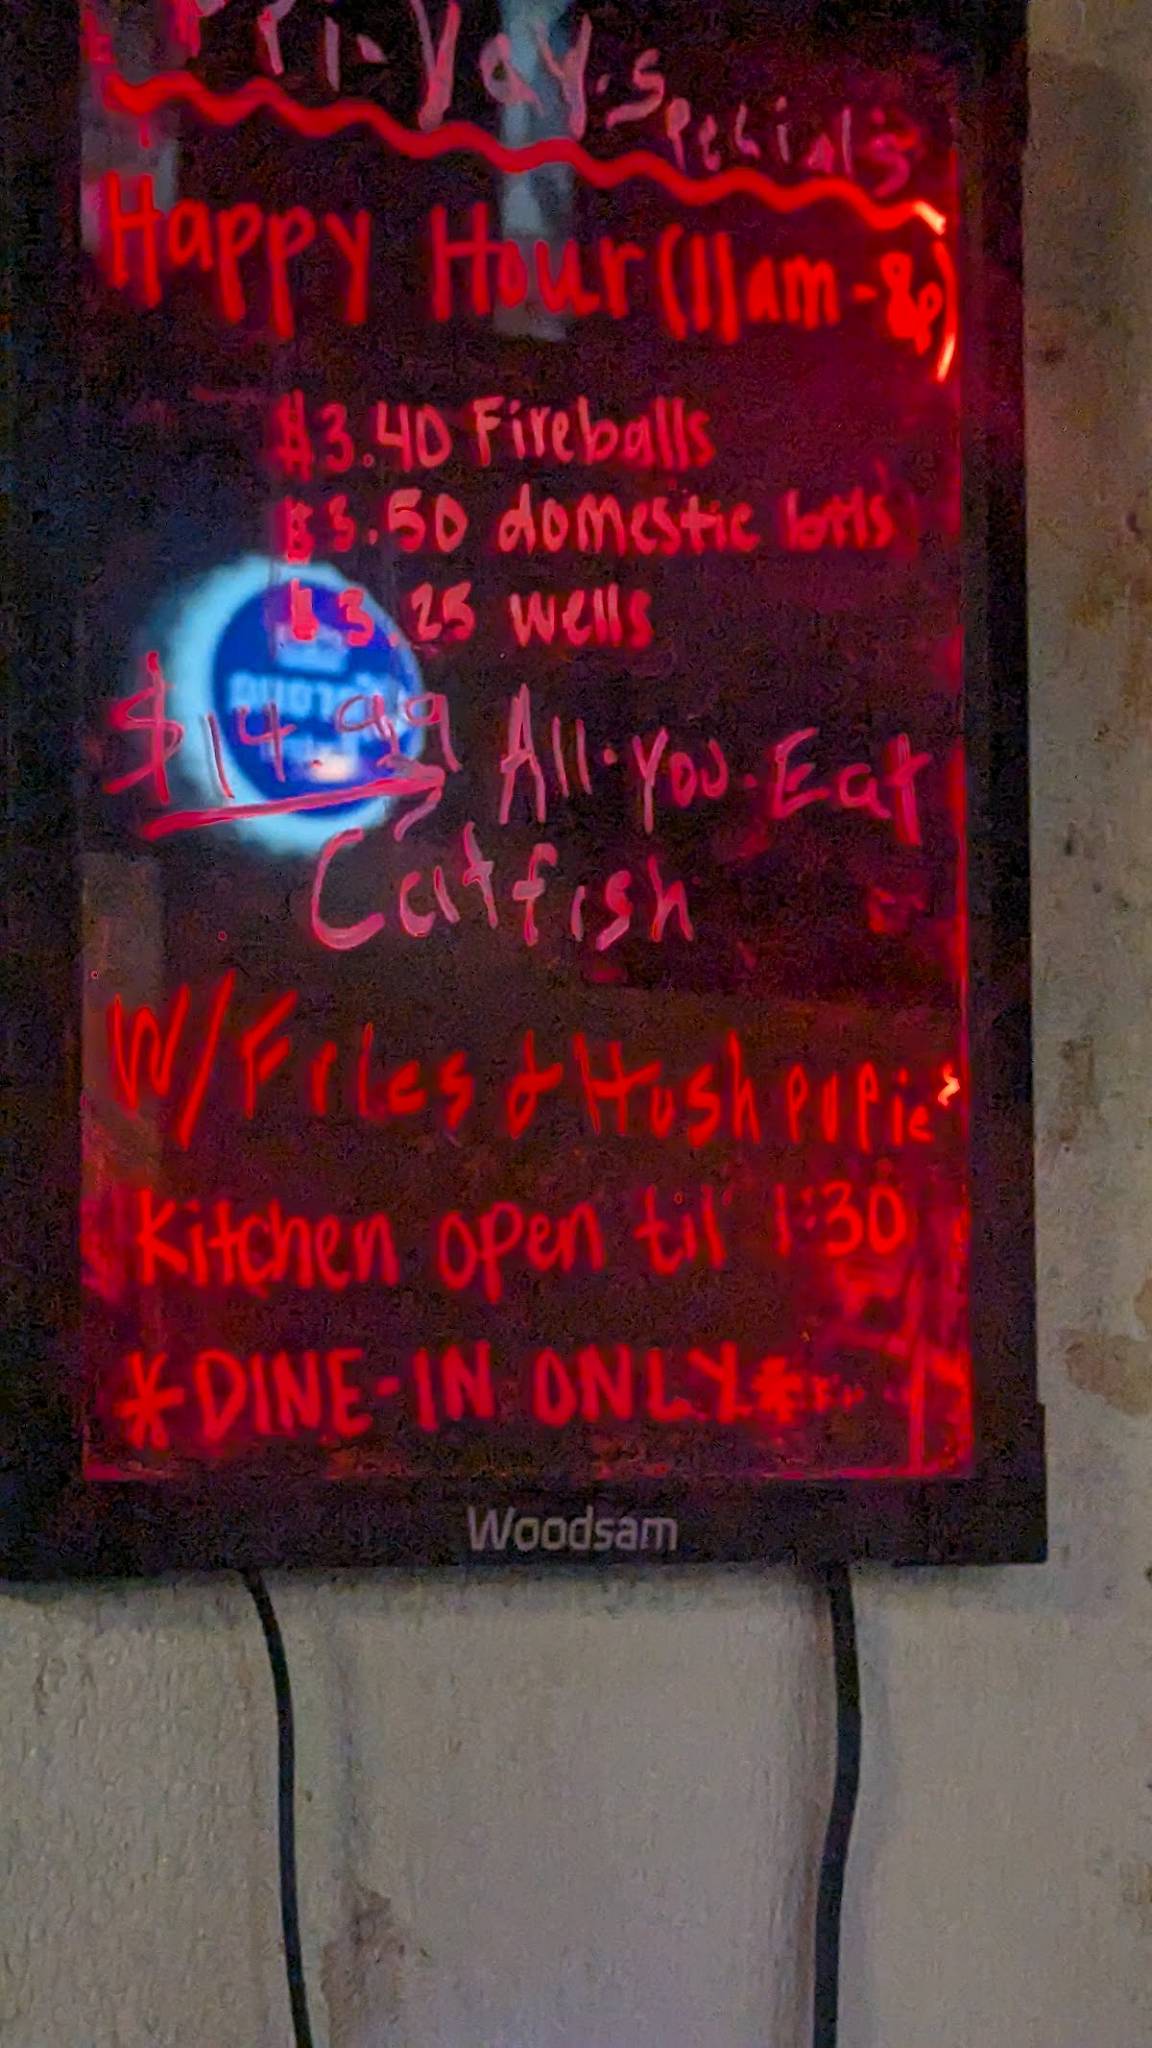 Fri-Day.Specials
Happy Hour (11am-8p)
$3.40 Fireballs
$3.50 domestic botls
$3.25 wells
$14.99 All.You.Eat
Catfish
W/Fries & Hushpuppies
Kitchen open til 1:30
*DINE-IN ONLY*
Woodsam